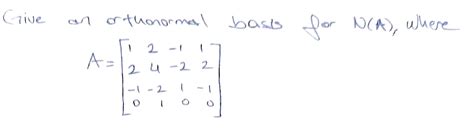 Give an orthonormal basis for N(A), where
A = [1 2 -1 1
2 4 -2 2
-1 -2 1 -1
0 1 0 0]